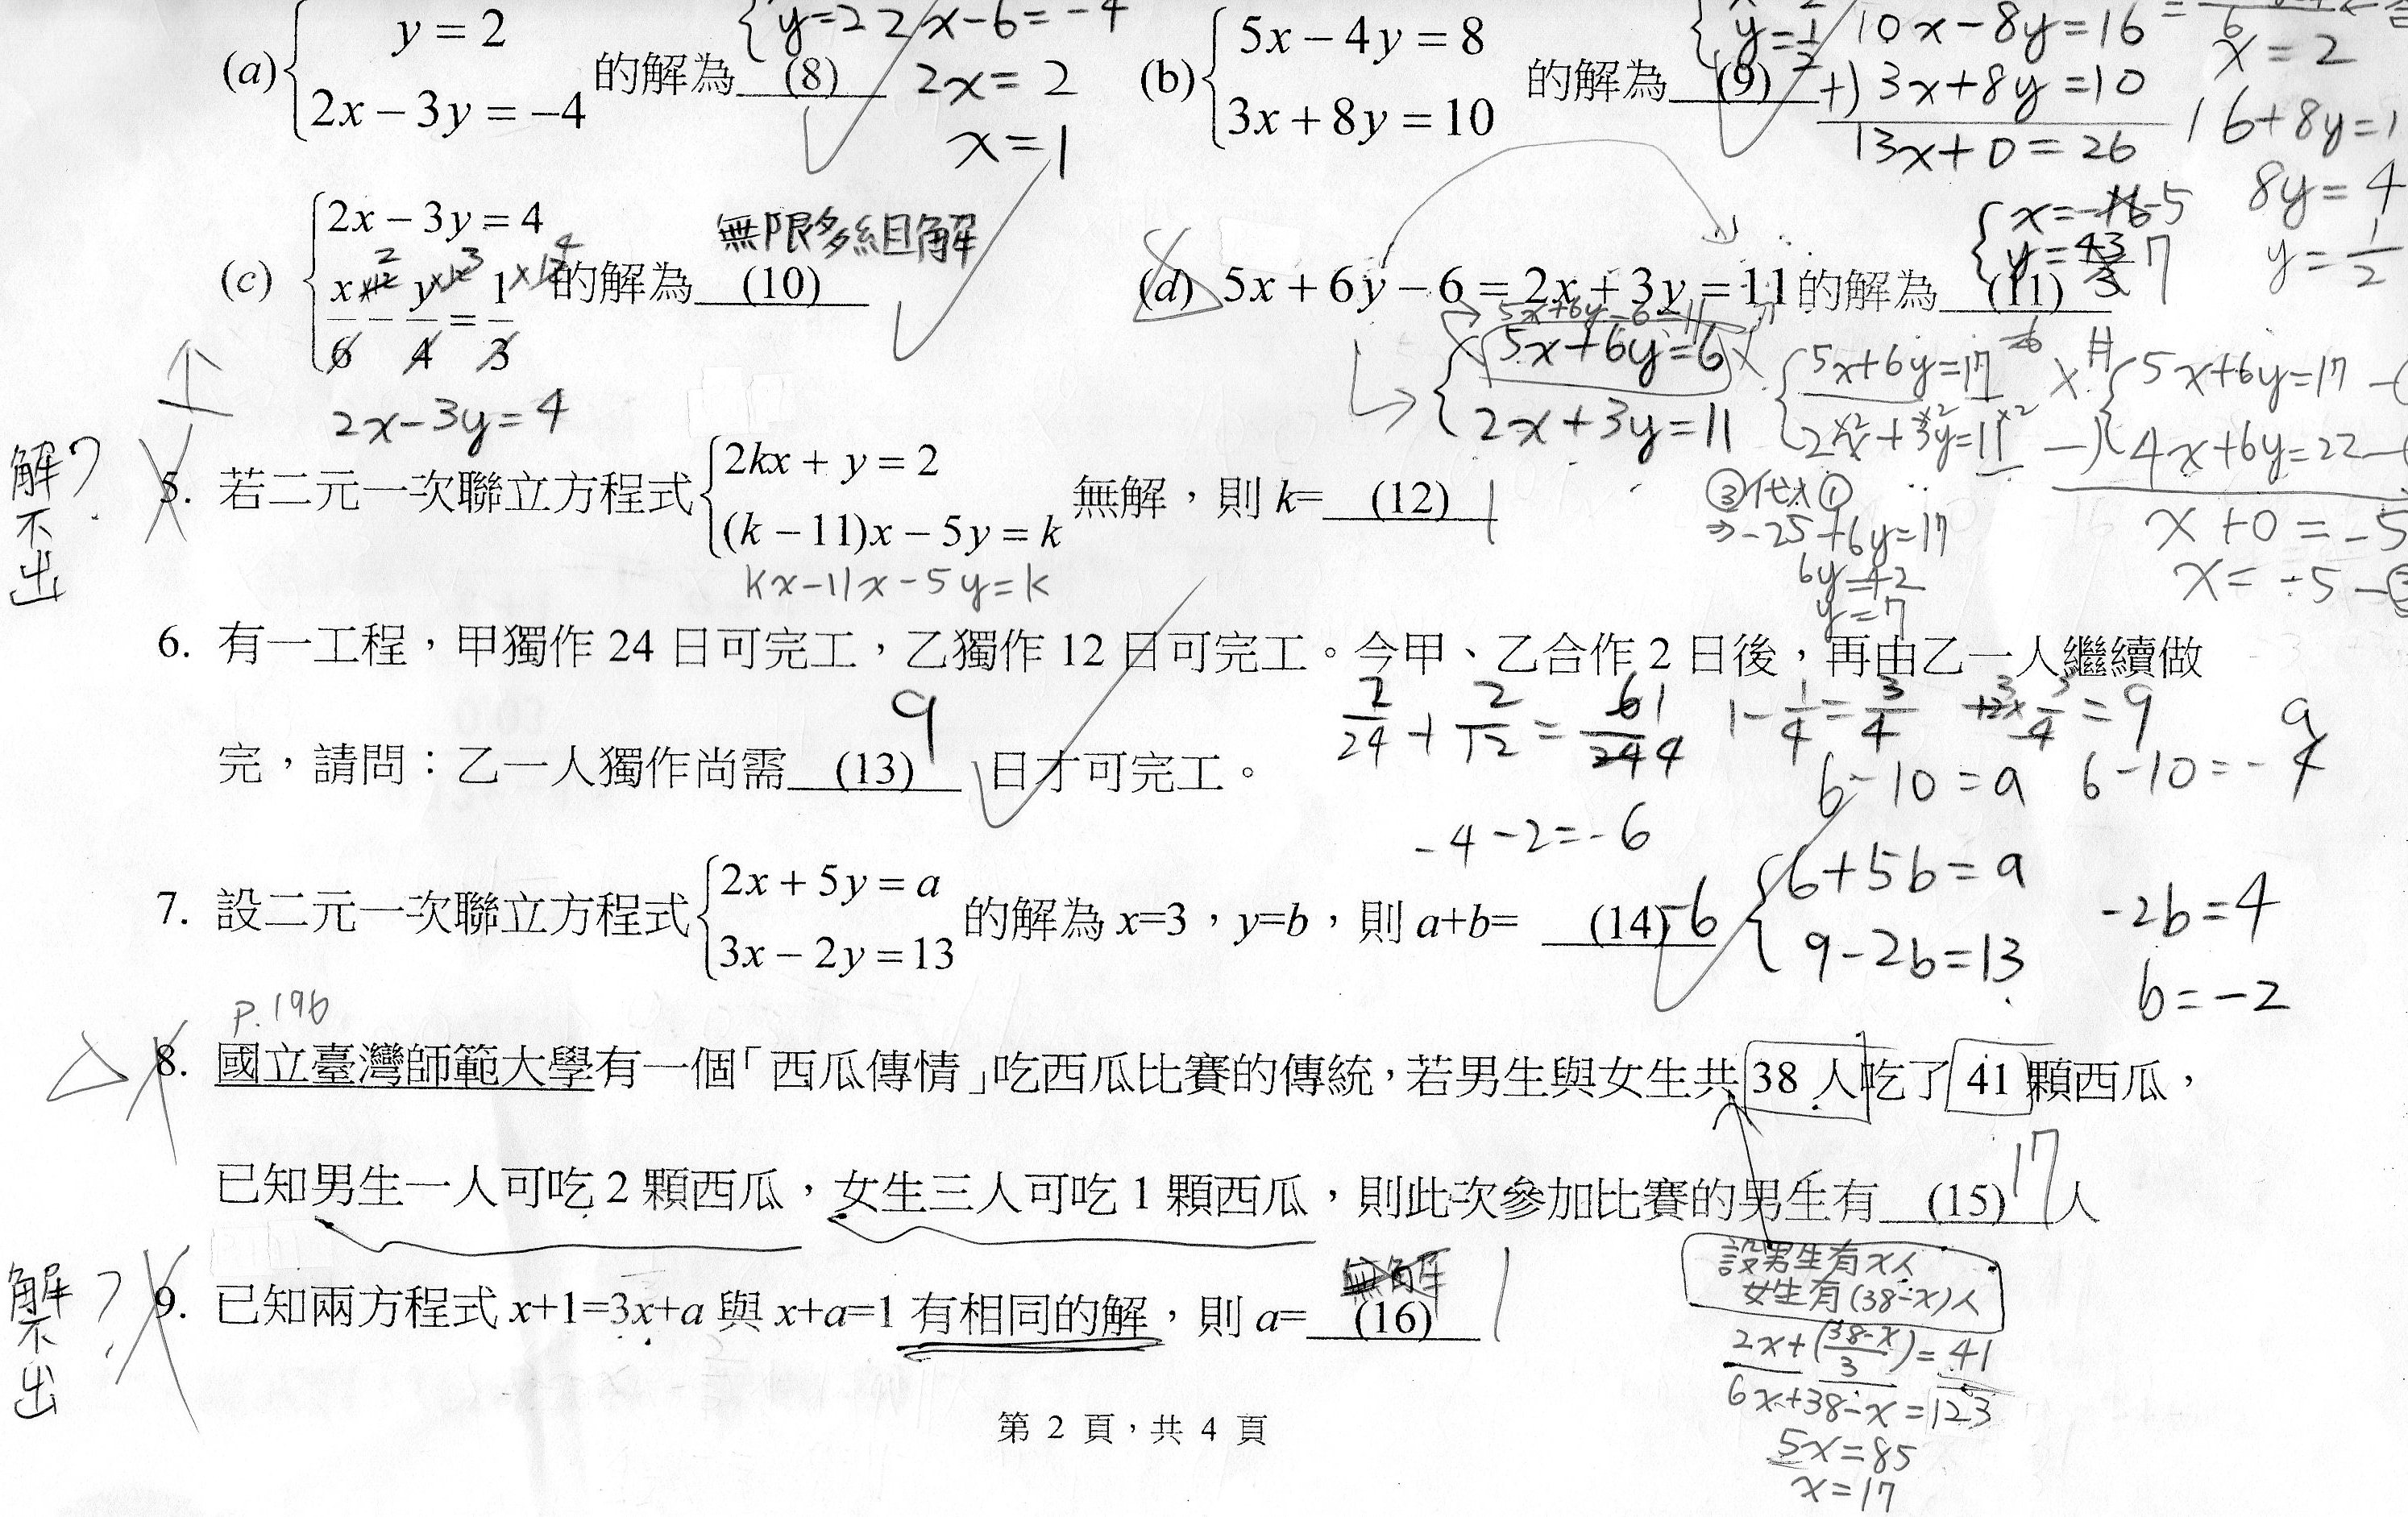 (a) { y = 2
2x − 3y = −4 的解為 (8)
{ y=2 2x−6=−4
2x=2
x=1
(b) { 5x − 4y = 8
3x + 8y = 10 的解為 (9)
10x−8y=16
+) 3x+8y=10
13x+0=26
x=2
16+8y=1
8y=4
y=1/2
(c) { 2x − 3y = 4
x/6 − y/4 = 1/3 的解為 (10)
無限多組解
2x−3y=4
(d) 5x + 6y − 6 = 2x + 3y = 11 的解為 (11)
5x+6y−6=11
5x+6y=6
2x+3y=11
5x+6y=17
2x+3y=11
5x+6y=17
−) 4x+6y=22
x+0=−5
x=−5
③代入①
⇒−25+6y=17
6y=42
y=7
解不出?
5. 若二元一次聯立方程式 { 2kx + y = 2
(k − 11)x − 5y = k 無解，則 k= (12)
kx−11x−5y=k
6. 有一工程，甲獨作 24 日可完工，乙獨作 12 日可完工。今甲、乙合作 2 日後，再由乙一人繼續做
完，請問：乙一人獨作尚需 (13) 日才可完工。
9
1−1/4=3/4
6−10=a 6−10=−4
−4−2=−6
7. 設二元一次聯立方程式 { 2x + 5y = a
3x − 2y = 13 的解為 x=3，y=b，則 a+b= (14)
−6
{ 6+5b=a
9−2b=13
−2b=4
b=−2
P.196
8. 國立臺灣師範大學有一個「西瓜傳情」吃西瓜比賽的傳統，若男生與女生共 38 人吃了 41 顆西瓜，
已知男生一人可吃 2 顆西瓜，女生三人可吃 1 顆西瓜，則此次參加比賽的男生有 (15) 人
17
設男生有x人
女生有(38−x)人
2x+(38−x/3)=41
6x+38−x=123
5x=85
x=17
解不出?
無解
9. 已知兩方程式 x+1=3x+a 與 x+a=1 有相同的解，則 a= (16)
第 2 頁，共 4 頁